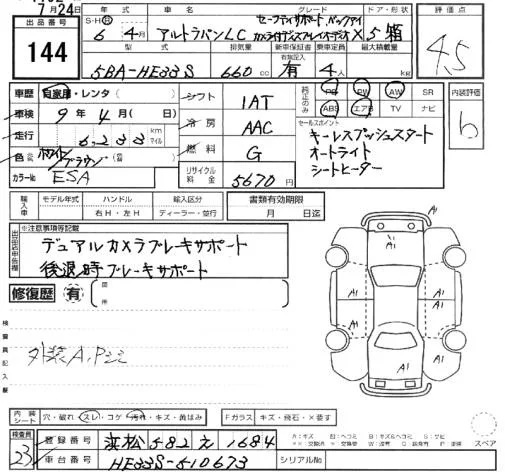 7月24日
出品番号
144
年式 車名 グレード ドア・形状
S・H R 6年4月 アルトラパンLC セーフティサポート、バックアイ
カメラ付ディスプレイオーディオ X 5 箱
型式 排気量 新車保証書 乗車定員 最大積載量
有無記入
5BA-HE33S 660cc 有 4人 kg
評価点
4.5
内装評価
b
車歴 自家用・レンタ( )
車検 9年4月( 日)
走行 6,233 km マイル
色 ホワイト/ブラウン
カラーNo ESA
シフト 1AT
冷房 AAC
燃料 G
リサイクル料金 5670円
純正のみ PS PW AW SR
ABS エアB TV ナビ
セールスポイント
キーレスプッシュスタート
オートライト
シートヒーター
輸入車 モデル年式 ハンドル 輸入区分
右H・左H ディーラー・並行
書類有効期限
月 日迄
出品店申告欄
※注意事項等記載
デュアルカメラブレーキサポート
後退時ブレーキサポート
修復歴 有 箇所
検査員記入欄
外装A,Pシミ
A1
A1
A1 A1
A1
A1
内装シート 穴・破れ・スレ・コゲ・汚れ・キズ・黄ばみ
Fガラス キズ・飛石・X要す
検査員
23
登録番号 浜松 582 え 1684
車台番号 HE33S-510673
シリアルNo
スペア